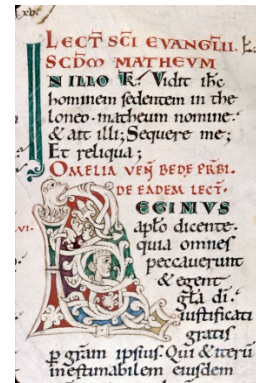 LECT SCI EVANGLII.
SCDM MATHEVM
IN ILLO T: Vidit ihc
hominem sedentem in the
loneo. matheum nomine.
& ait illi; Sequere me;
Et reliqua;
OMELIA VEN BEDE PRBI.
DE EADEM LECT.
VI.
LEGIMVS
aplo dicente.
quia omnes
peccauerunt
& egent
gla di.
iustificati
gratis
p gram ipsius. Qui & iteru
inestimabilem eiusdem